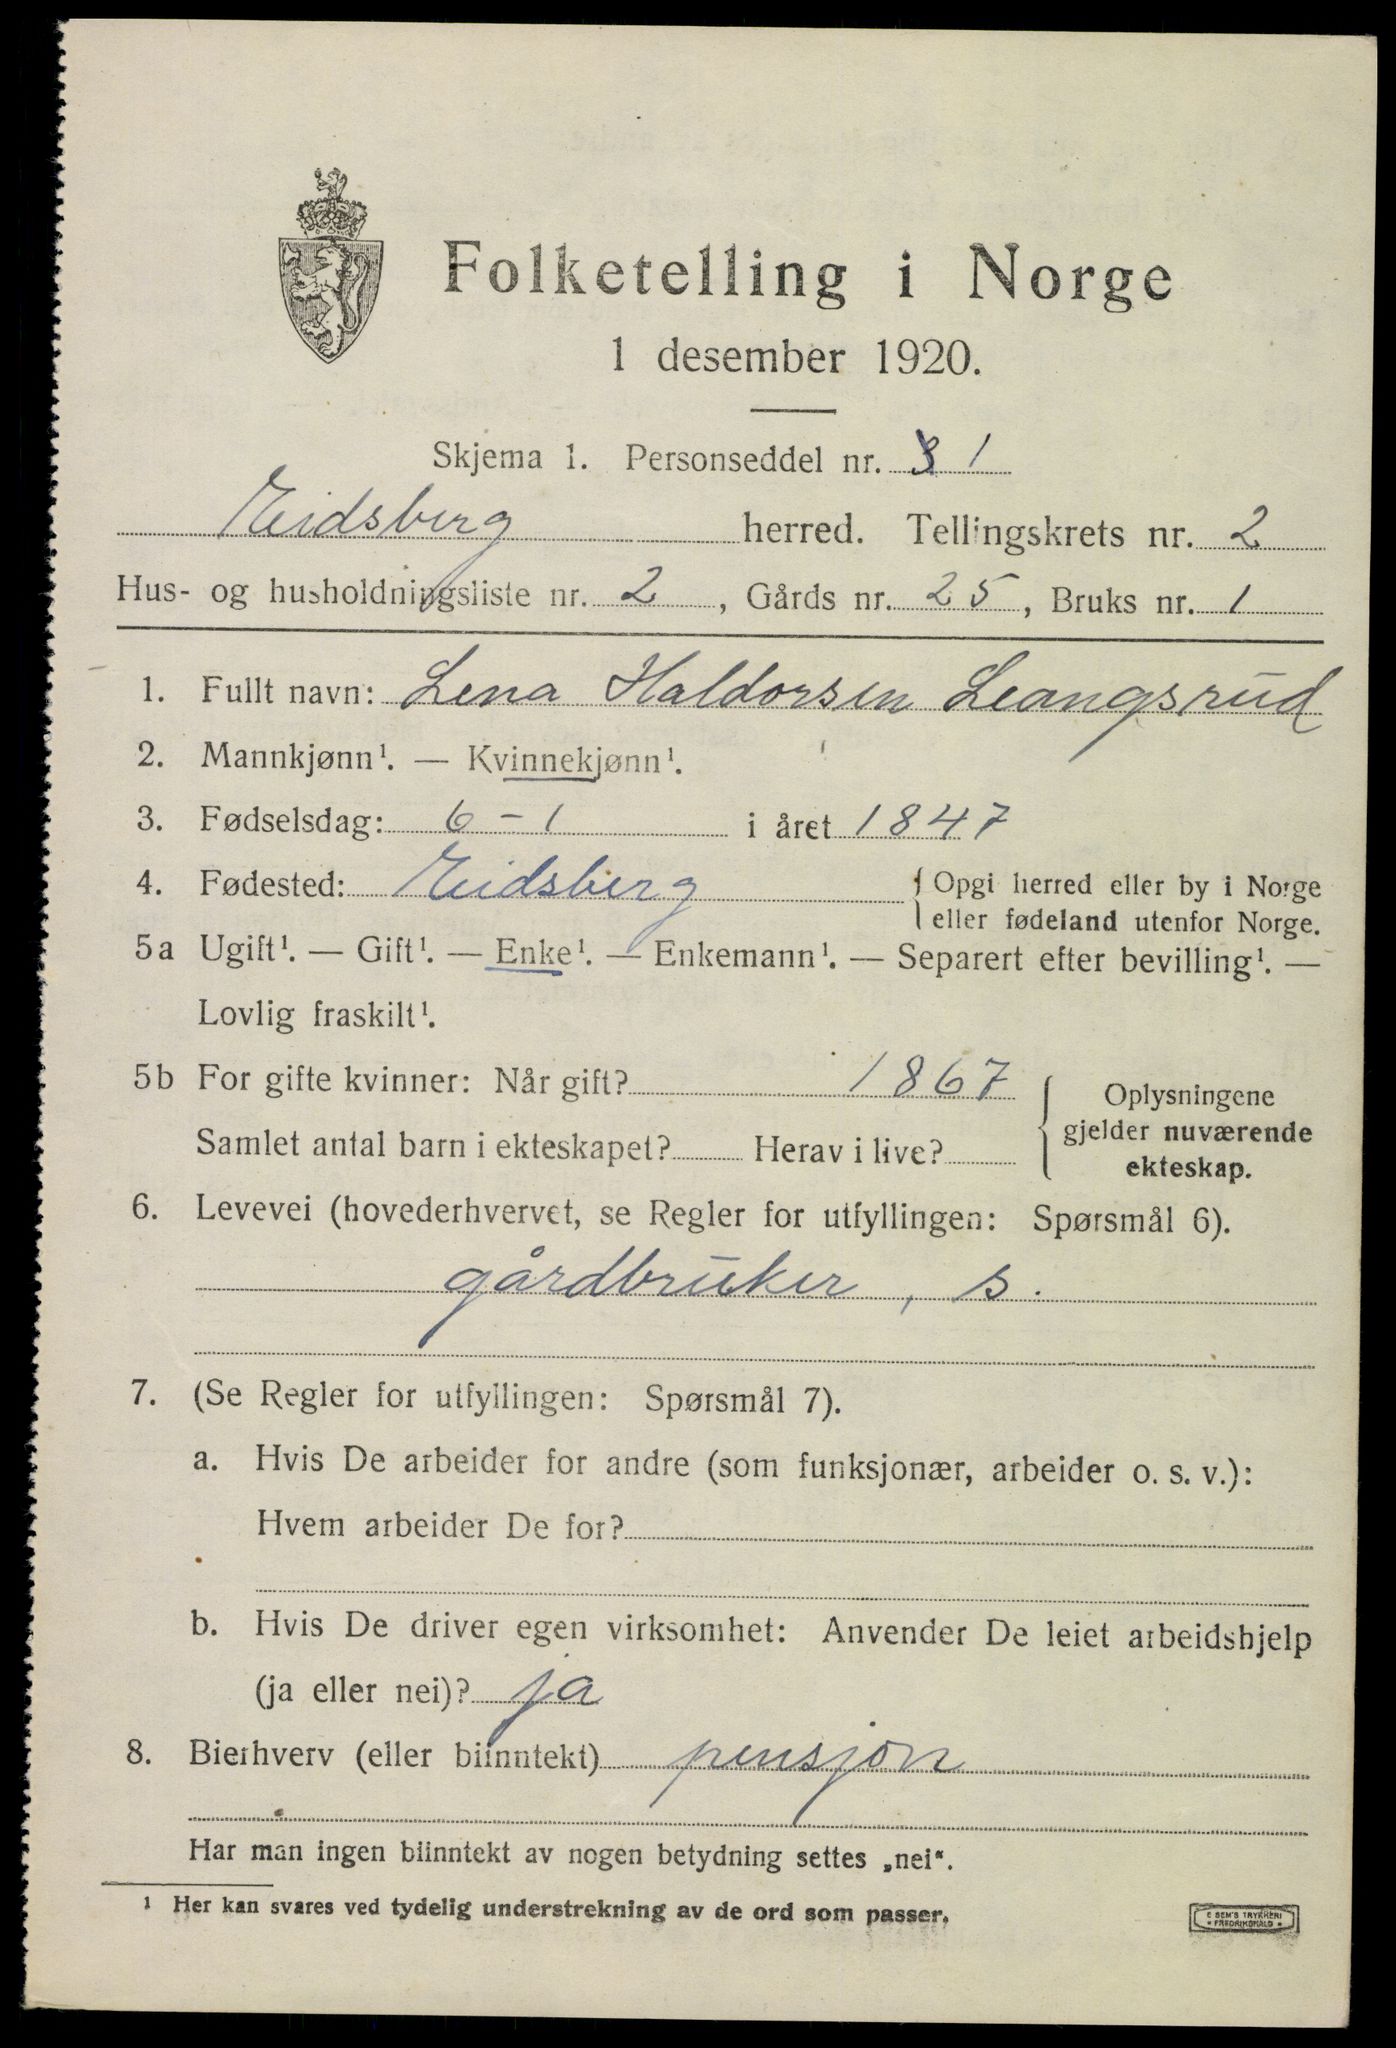 Folketelling i Norge
1 desember 1920.
Skjema 1. Personseddel nr. 1
Eidsberg herred. Tellingskrets nr. 2
Hus- og husholdningsliste nr. 2, Gårds nr. 25, Bruks nr. 1
1. Fullt navn: Lena Haldorsen Leangsrud
2. Mannkjønn¹. — Kvinnekjønn¹.
3. Fødselsdag: 6 - 1 i året 1847
4. Fødested: Eidsberg { Opgi herred eller by i Norge
eller fødeland utenfor Norge.
5a Ugift¹. — Gift¹. — Enke¹. — Enkemann¹. — Separert efter bevilling¹. —
Lovlig fraskilt¹.
5b For gifte kvinner: Når gift? 1867
Samlet antal barn i ekteskapet? Herav i live?
{ Oplysningene
gjelder nuværende
ekteskap.
6. Levevei (hovederhvervet, se Regler for utfyllingen: Spørsmål 6).
gårdbruker, s.
7. (Se Regler for utfyllingen: Spørsmål 7).
a. Hvis De arbeider for andre (som funksjonær, arbeider o. s. v.):
Hvem arbeider De for?
b. Hvis De driver egen virksomhet: Anvender De leiet arbeidshjelp
(ja eller nei)? ja
8. Bierhverv (eller biinntekt) pensjon
Har man ingen biinntekt av nogen betydning settes „nei“.
¹ Her kan svares ved tydelig understrekning av de ord som passer.
E SEM'S TRYKKERI
• FREDRIKSHALD •